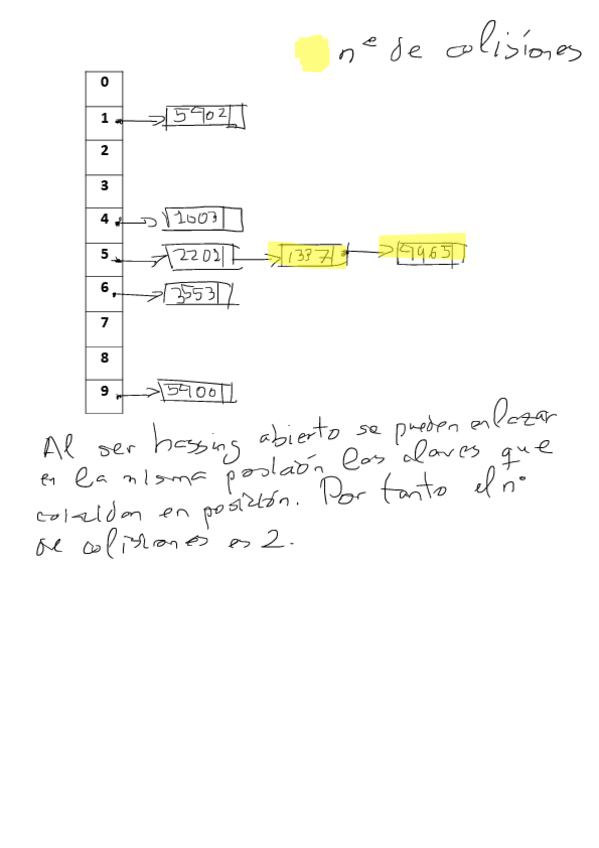 nº de colisiones
0
1 5402
2
3
4 1003
5 2201 1337 9965
6 3553
7
8
9 5400
Al ser hassing abierto se pueden enlazar
en la misma posición las claves que
coincidan en posición. Por tanto el nº
de colisiones es 2.